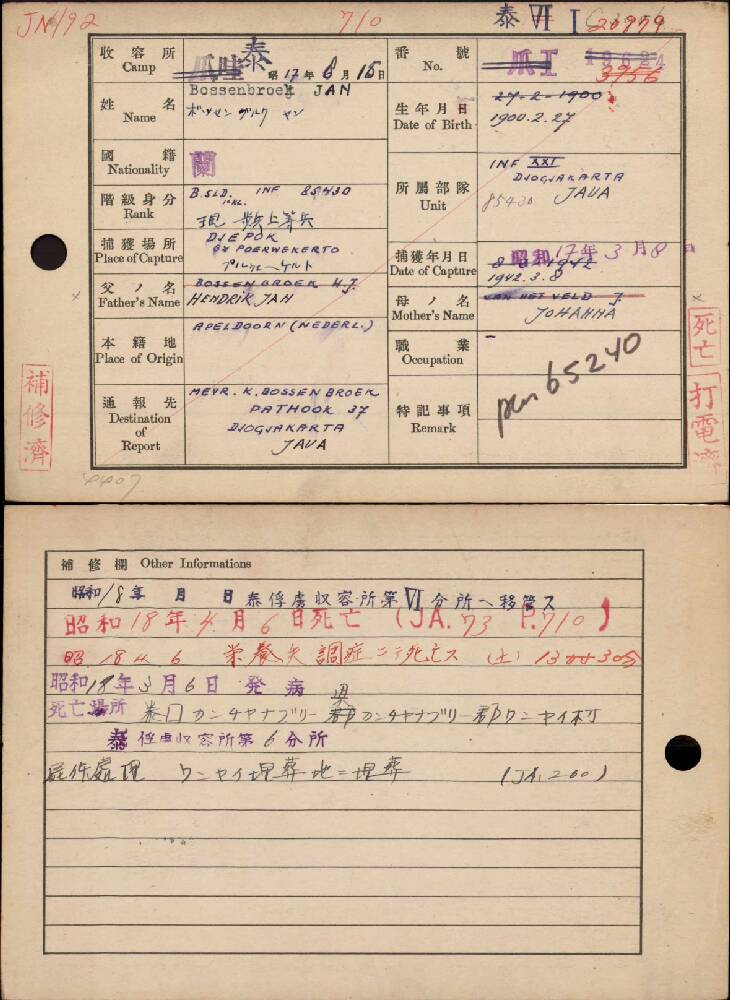 JN492
710
泰 VI I 20979
收容所 Camp 爪哇 泰 昭17年8月15日
番號 No. 爪I 19624 3756
姓名 Name Bossenbroek JAN
ボッセンブルク ヤン
生年月日 Date of Birth 27-2-1900
1900.2.27
國籍 Nationality 蘭
階級身分 Rank B.SLD. INF 85430
1e KL.
現 歩上等兵
所属部隊 Unit INF XXI
DJOGJAKARTA
85430 JAVA
捕獲場所 Place of Capture DJEPOK
by POERWEKERTO
プルウェーケルト
捕獲年月日 Date of Capture 昭和17年3月8日
8-3-1942
1942.3.8
父ノ名 Father's Name BOSSENBROEK H.J.
HENDRIK JAN
母ノ名 Mother's Name VAN HET VELD J.
JOHANNA
本籍地 Place of Origin APELDOORN (NEDERL.)
職業 Occupation -
通報先 Destination of Report MEVR. K. BOSSENBROEK
PATHOOK 37
DJOGJAKARTA
JAVA
特記事項 Remark
pen 65240
補修濟
死亡
打電濟
4407
補修欄 Other Informations
昭和18年 月 日 泰俘虜収容所第VI分所ヘ移管ス
昭和18年4月6日死亡 (JA.73 P.710)
昭 18 4. 6 栄養失調症ニテ死亡ス (土) 13時30分
昭和18年3月6日 発病
死亡場所 泰国カンチャナブリー県カンチャナブリー郡ワンヤイ村
泰俘虜収容所第6分所
屍体処理 ワンヤイ埋葬地ニ埋葬 (JA.200)